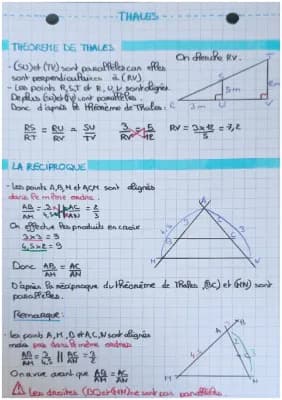 THALES
THEOREME DE THALES
- (SU) et (TV) sont parallèles car elles
sont perpendiculaires à (RV)
- Les points R,S,T et R,U,V sont alignés
De plus (SU) et (TV) sont parallèles.
Donc d'après le théorème de Thalès:
RS/RT = RU/RV = SU/TV 3/RV = 5/12 RV = 3x12/5 = 7,2
On cherche RV.
T
S
5m
R
3m
U
V
LA RECIPROQUE
- Les points A,B,M et A,C,N sont alignés
dans le même ordre.
AB/AM = || AC/AN = 2/3
On effectue les produits en croix
3x3 = 9
4,5x2 = 9
Donc AB/AM = AC/AN
D'après la réciproque du théorème de Thalès, (BC) et (MN) sont
parallèles.
A
B
C
M
N
Remarque:
- les points A,M,B et A,C,N sont alignés
mais pas dans le même ordre
AB/AM = 3/4,5 || AC/AN = 2/3
On a vu avant que AB/AM = AC/AN
A
B
C
4,5
M
N
Les droites (BC) et (MN) ne sont pas parallèles.